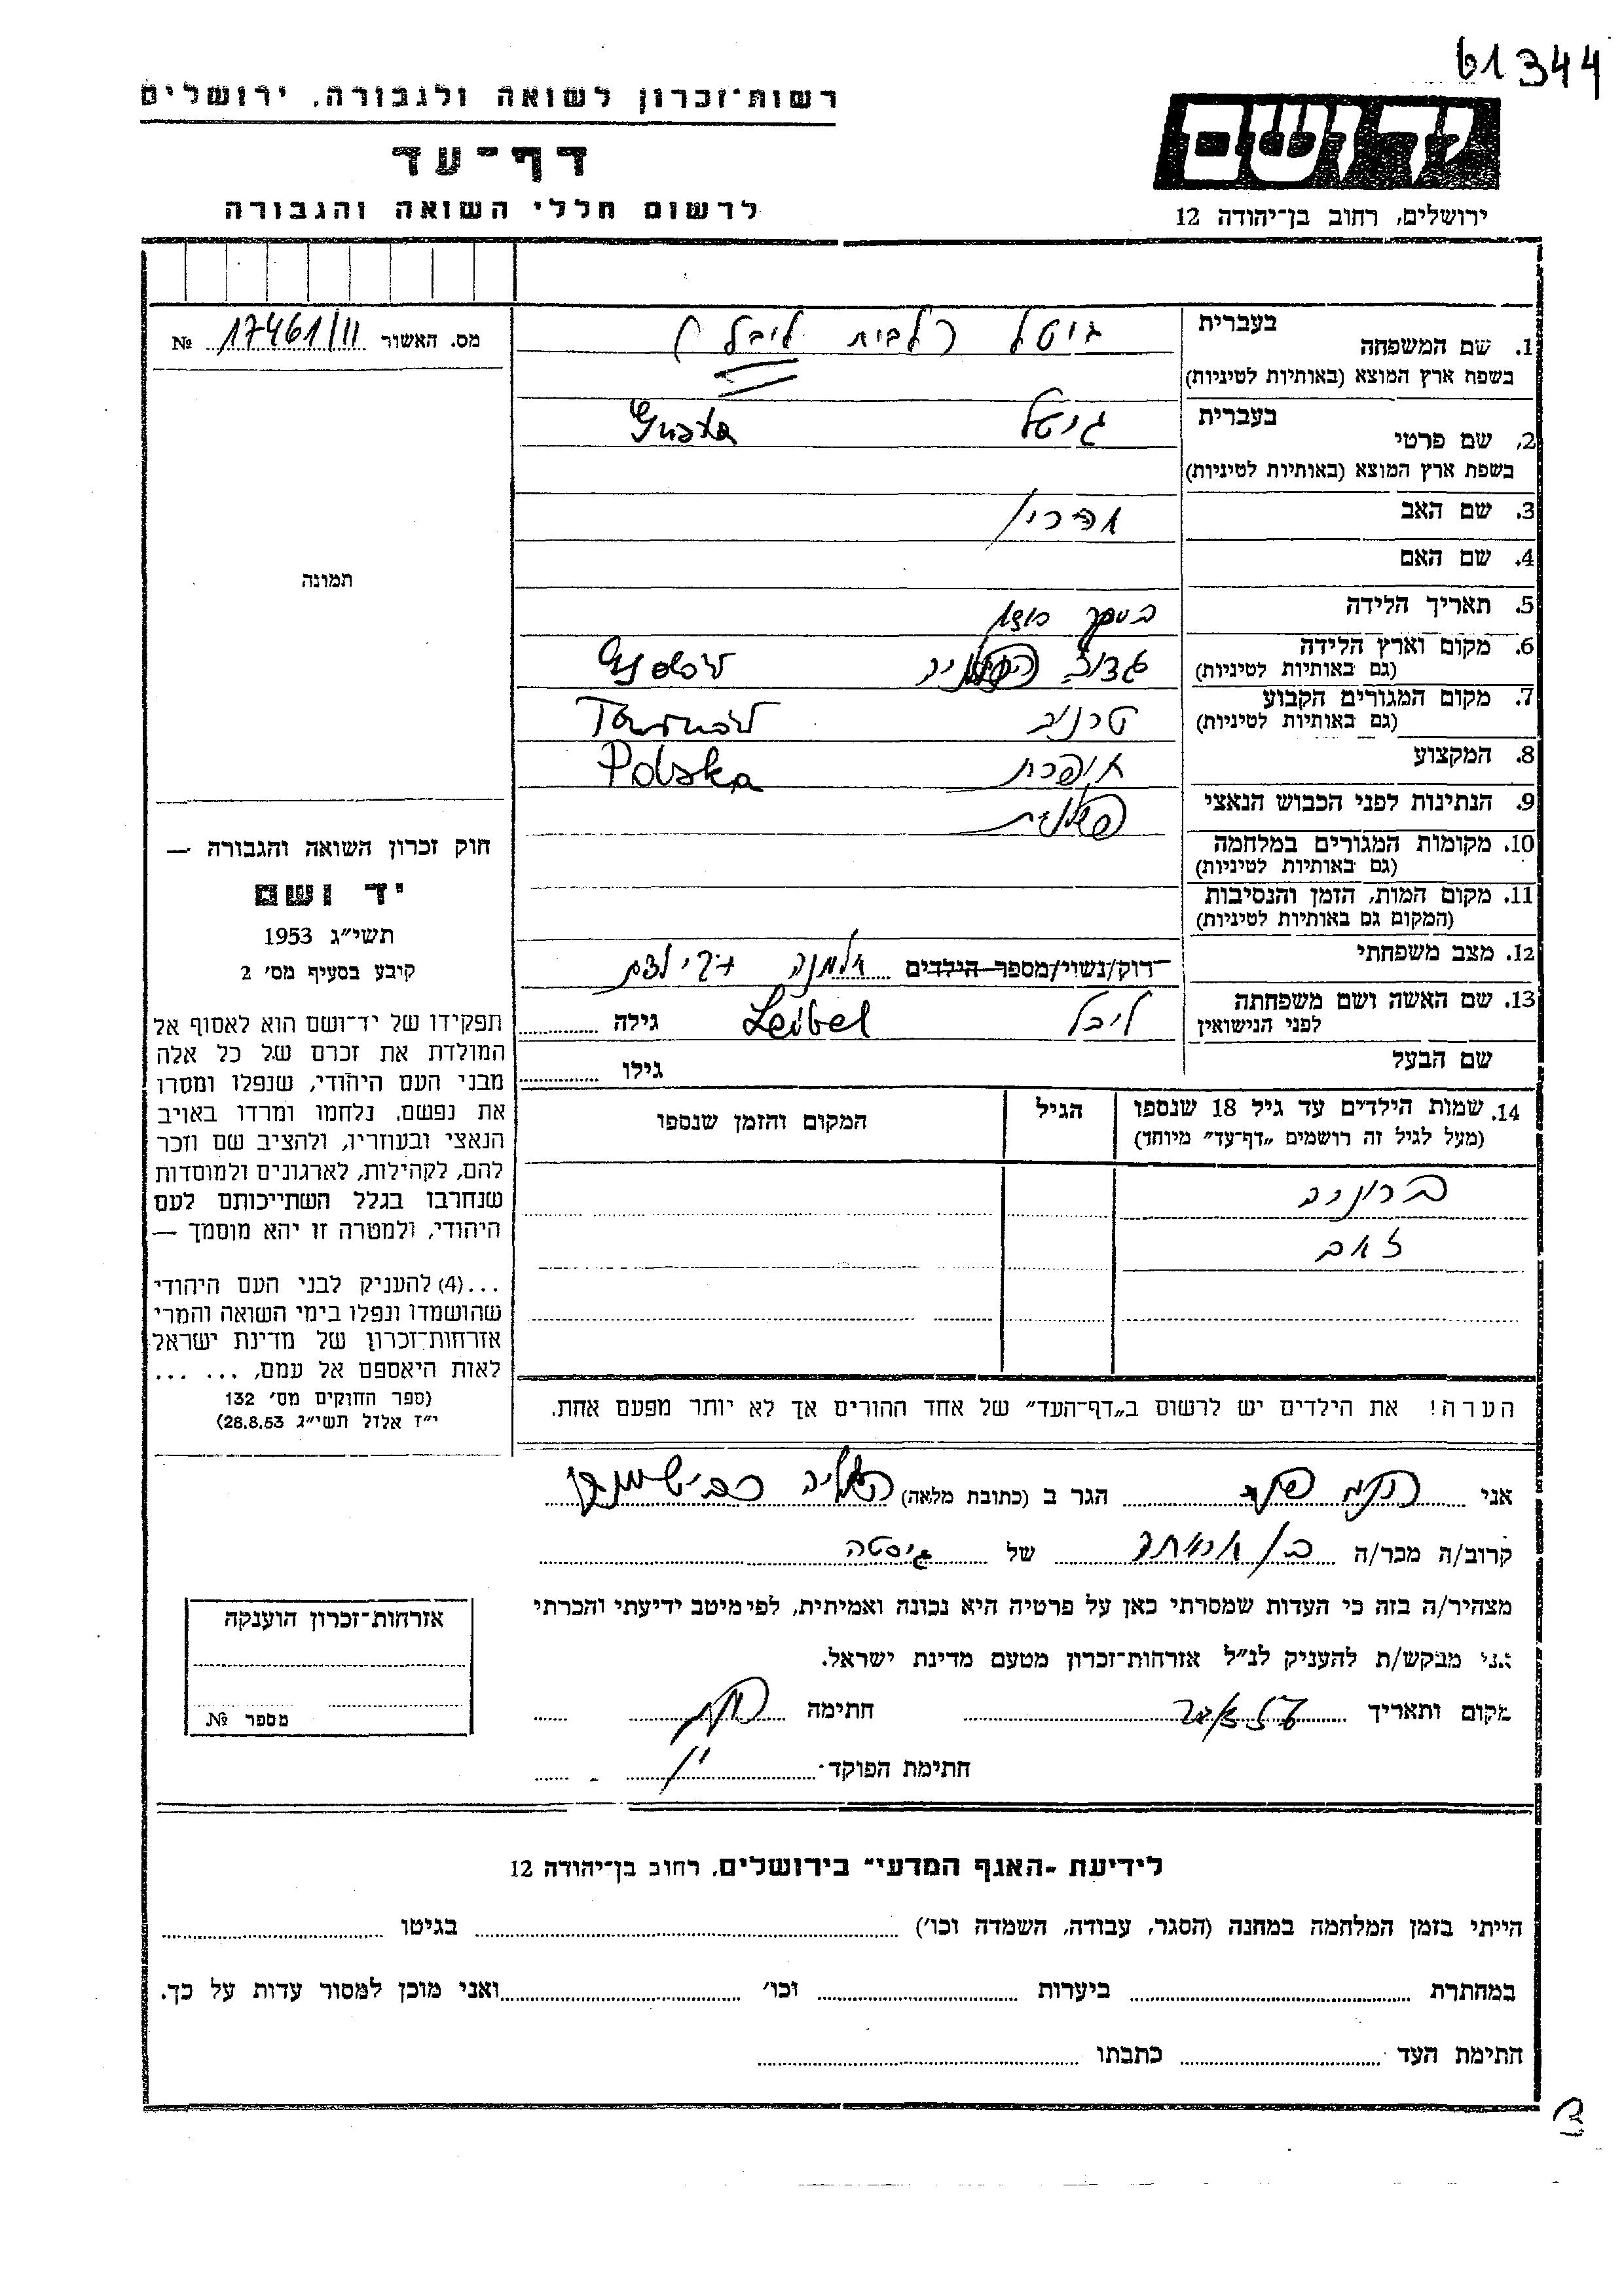 61344
רשות־זכרון לשואה ולגבורה, ירושלים
דף־עד
לרשום חללי השואה והגבורה
יד ושם
ירושלים, רחוב בן־יהודה 12
מס. האשור 17461/II №
תמונה
חוק זכרון השואה והגבורה —
יד ושם
תשי״ג 1953
קיבע בסעיף מס׳ 2
תפקידו של יד־ושם הוא לאסוף אל
המולדת את זכרם של כל אלה
מבני העם היהודי, שנפלו ומסרו
את נפשם, נלחמו ומרדו באויב
הנאצי ובעוזריו, ולהציב שם וזכר
להם, לקהילות, לארגונים ולמוסדות
שנחרבו בגלל השתייכותם לעם
היהודי, ולמטרה זו יהא מוסמך —
...(4) להעניק לבני העם היהודי
שהושמדו ונפלו בימי השואה והמרי
אזרחות־זכרון של מדינת ישראל
לאות היאספם אל עמם, ... ...
(ספר החוקים מס׳ 132
י״ז אלול תשי״ג 28.8.53)
בעברית
1. שם המשפחה (לבית ליבל)
בשפת ארץ המוצא (באותיות לטיניות)
בעברית
2. שם פרטי גיטל Gusta
בשפת ארץ המוצא (באותיות לטיניות)
3. שם האב אהרון
4. שם האם
5. תאריך הלידה
6. מקום וארץ הלידה
(גם באותיות לטיניות)
7. מקום המגורים הקבוע טרנוב Tarnów
(גם באותיות לטיניות)
8. המקצוע תופרת Polska
9. הנתינות לפני הכבוש הנאצי פולנית
10. מקומות המגורים במלחמה
(גם באותיות לטיניות)
11. מקום המות, הזמן והנסיבות
(המקום גם באותיות לטיניות)
12. מצב משפחתי רווק/נשוי/מספר הילדים אלמנה
13. שם האשה ושם משפחתה ליבל Leibel גילה
לפני הנישואין
שם הבעל גילו
14. שמות הילדים עד גיל 18 שנספו הגיל המקום והזמן שנספו
(מעל לגיל זה רושמים „דף־עד״ מיוחד)
ברוניה
זאב
הערה! את הילדים יש לרשום ב„דף־העד״ של אחד ההורים אך לא יותר מפעם אחת.
אני הגר ב (כתובת מלאה)
קרוב/ה מכר/ה בן של גוסטה
מצהיר/ה בזה כי העדות שמסרתי כאן על פרטיה היא נכונה ואמיתית, לפי מיטב ידיעתי והכרתי
אני מבקש/ת להעניק לנ״ל אזרחות־זכרון מטעם מדינת ישראל.
מקום ותאריך חתימה
חתימת הפוקד
אזרחות־זכרון הוענקה
מספר №
לידיעת „האגף המדעי״ בירושלים, רחוב בן־יהודה 12
הייתי בזמן המלחמה במחנה (הסגר, עבודה, השמדה וכו׳) בגיטו
במחתרת ביערות וכו׳ ואני מוכן למסור עדות על כך.
חתימת העד כתבתו